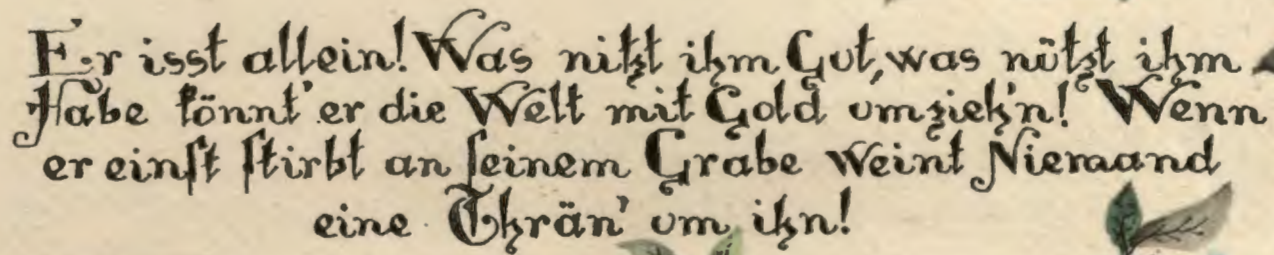 Er isst allein! Was nitzt ihm Gut, was nützt ihm
Habe könnt' er die Welt mit Gold umzieh'n! Wenn
er einſt ſtirbt an ſeinem Grabe weint Niemand
eine Thrän' um ihn!